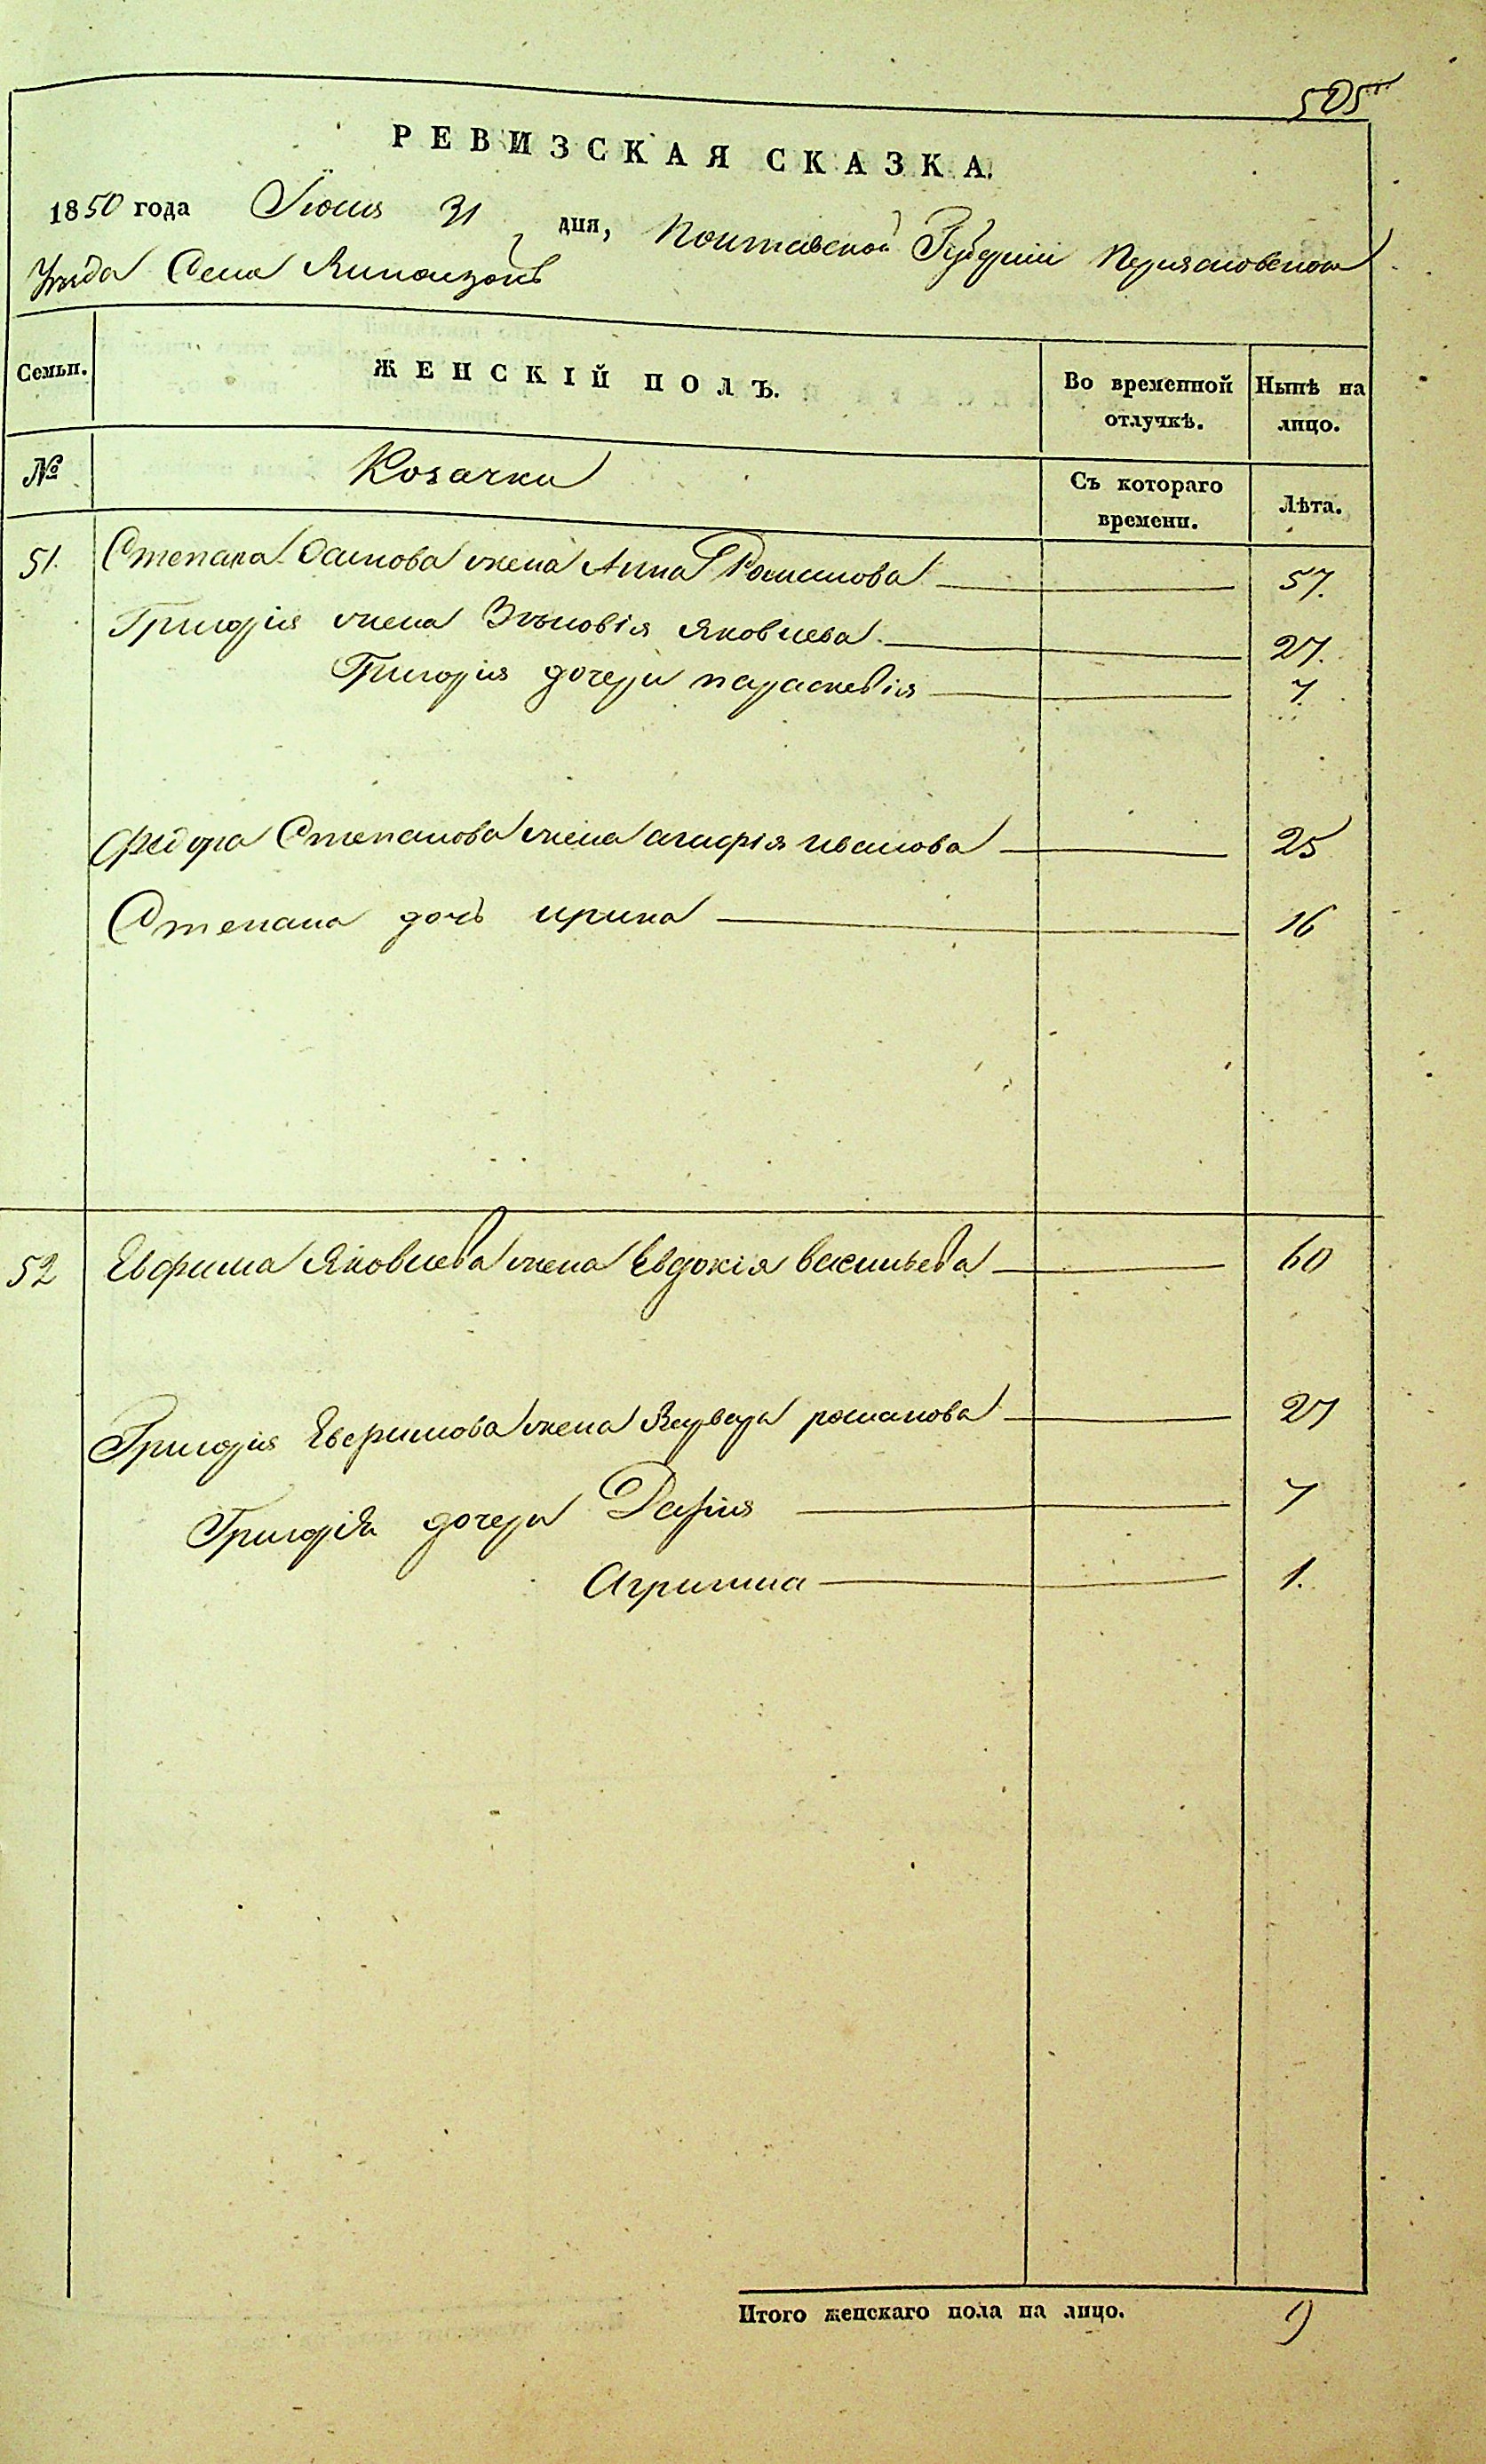 505
РЕВИЗСКАЯ СКАЗКА.
1850 года Июня 31 дня, Полтавской Губерніи Переясловского
Уезда Села
Семьи. ЖЕНСКІЙ ПОЛЪ. Во временной отлучкѣ. Нынѣ на лицо.
№ Козачки Съ котораго времени. Лѣта.
51. Степана Осипова жена Анна Романова 57.
Григорія жена Зѣновія Яковлева 27.
Григорія дочери параскевія 7.
Федора Степанова жена агафія иванова 25
Степана дочь ирина 16
52 Евфима Яковлева жена Евдокія васильева 60
Григорія Евфимова жена Варвара романова 27
Григорія дочери Дарія 7
Агрипина 1.
Итого женскаго пола на лицо. 9